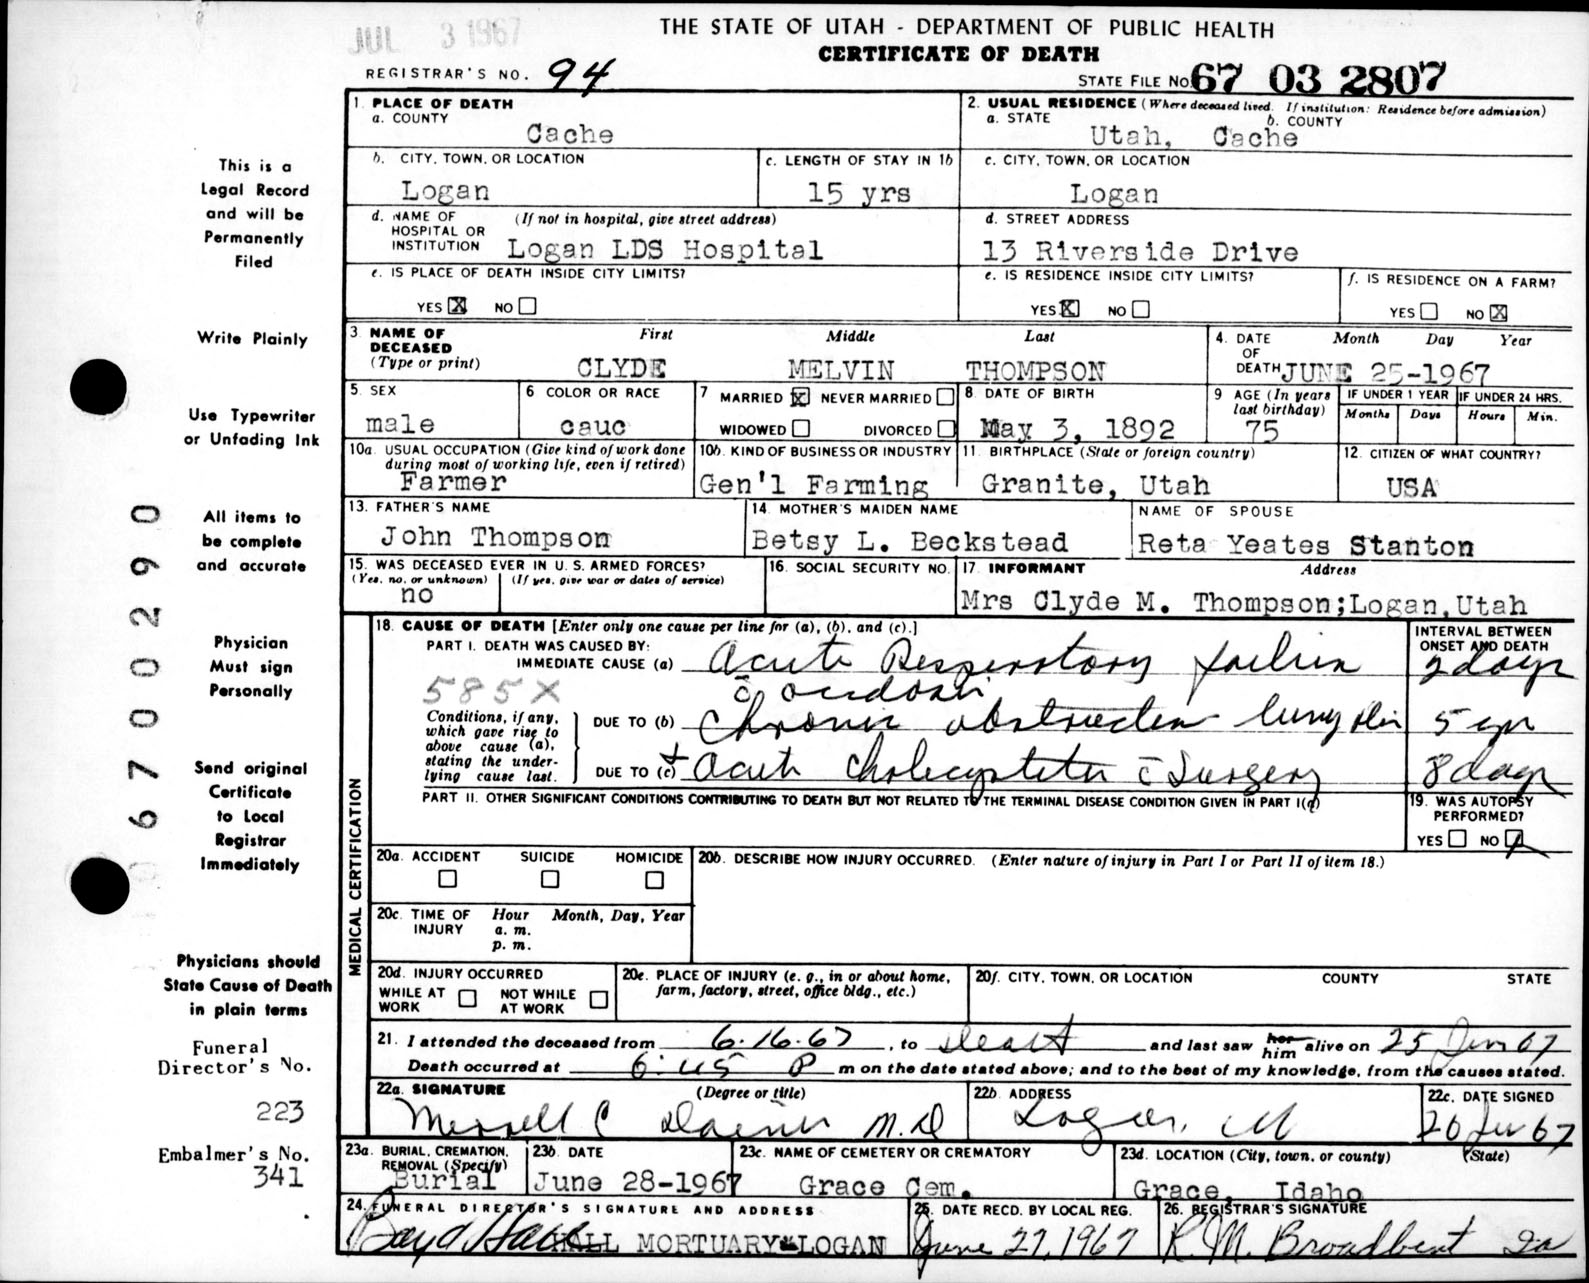 JUL 3 1967
THE STATE OF UTAH - DEPARTMENT OF PUBLIC HEALTH
CERTIFICATE OF DEATH
REGISTRAR'S NO. 94
STATE FILE NO. 67 03 2807
This is a
Legal Record
and will be
Permanently
Filed
Write Plainly
Use Typewriter
or Unfading Ink
All items to
be complete
and accurate
Physician
Must sign
Personally
Send original
Certificate
to Local
Registrar
Immediately
Physicians should
State Cause of Death
in plain terms
Funeral
Director's No.
223
Embalmer's No.
341
0 6 7 0 0 2 9 0
1. PLACE OF DEATH
a. COUNTY
Cache
2. USUAL RESIDENCE (Where deceased lived. If institution: Residence before admission)
a. STATE b. COUNTY
Utah, Cache
b. CITY, TOWN, OR LOCATION
Logan
c. LENGTH OF STAY IN 1b
15 yrs
c. CITY, TOWN, OR LOCATION
Logan
d. NAME OF HOSPITAL OR INSTITUTION (If not in hospital, give street address)
Logan LDS Hospital
d. STREET ADDRESS
13 Riverside Drive
e. IS PLACE OF DEATH INSIDE CITY LIMITS?
YES X NO
e. IS RESIDENCE INSIDE CITY LIMITS?
YES X NO
f. IS RESIDENCE ON A FARM?
YES NO X
3 NAME OF DECEASED (Type or print) First Middle Last
CLYDE MELVIN THOMPSON
4. DATE OF DEATH Month Day Year
JUNE 25-1967
5. SEX
male
6 COLOR OR RACE
cauc
7 MARRIED X NEVER MARRIED
WIDOWED DIVORCED
8. DATE OF BIRTH
May 3, 1892
9 AGE (In years last birthday)
75
IF UNDER 1 YEAR IF UNDER 24 HRS.
Months Days Hours Min.
10a. USUAL OCCUPATION (Give kind of work done during most of working life, even if retired)
Farmer
10b. KIND OF BUSINESS OR INDUSTRY
Gen'l Farming
11. BIRTHPLACE (State or foreign country)
Granite, Utah
12. CITIZEN OF WHAT COUNTRY?
USA
13. FATHER'S NAME
John Thompson
14. MOTHER'S MAIDEN NAME
Betsy L. Beckstead
NAME OF SPOUSE
Reta Yeates Stanton
15. WAS DECEASED EVER IN U. S. ARMED FORCES?
(Yes, no, or unknown) (If yes, give war or dates of service)
no
16. SOCIAL SECURITY NO.
17. INFORMANT Address
Mrs Clyde M. Thompson;Logan,Utah
MEDICAL CERTIFICATION
18. CAUSE OF DEATH [Enter only one cause per line for (a), (b), and (c).]
INTERVAL BETWEEN ONSET AND DEATH
PART I. DEATH WAS CAUSED BY:
IMMEDIATE CAUSE (a) Acute Respiratory failure 2 days
585X
Conditions, if any, which gave rise to above cause (a), stating the underlying cause last.
DUE TO (b) Chronic obstructive lung 5 yr
DUE TO (c) + Acute Cholecystitis c̄ Surgery 8 days
PART II. OTHER SIGNIFICANT CONDITIONS CONTRIBUTING TO DEATH BUT NOT RELATED TO THE TERMINAL DISEASE CONDITION GIVEN IN PART I(a)
19. WAS AUTOPSY PERFORMED?
YES NO X
20a. ACCIDENT SUICIDE HOMICIDE
20b. DESCRIBE HOW INJURY OCCURRED. (Enter nature of injury in Part I or Part II of item 18.)
20c. TIME OF INJURY Hour Month, Day, Year
a. m.
p. m.
20d. INJURY OCCURRED
WHILE AT WORK NOT WHILE AT WORK
20e. PLACE OF INJURY (e. g., in or about home, farm, factory, street, office bldg., etc.)
20f. CITY, TOWN, OR LOCATION COUNTY STATE
21. I attended the deceased from 6-16-67, to Death and last saw her him alive on 25 Jun 67
Death occurred at 6:45 P m on the date stated above; and to the best of my knowledge, from the causes stated.
22a. SIGNATURE (Degree or title)
Merrell C M.D
22b. ADDRESS
Logan, Ut
22c. DATE SIGNED
26 Jun 67
23a. BURIAL, CREMATION, REMOVAL (Specify)
Burial
23b. DATE
June 28-1967
23c. NAME OF CEMETERY OR CREMATORY
Grace Cem.
23d. LOCATION (City, town, or county) (State)
Grace, Idaho
24. FUNERAL DIRECTOR'S SIGNATURE AND ADDRESS
Boyd Hall HALL MORTUARY-LOGAN
25. DATE RECD. BY LOCAL REG.
June 27, 1967
26. REGISTRAR'S SIGNATURE
R.M. Broadbent